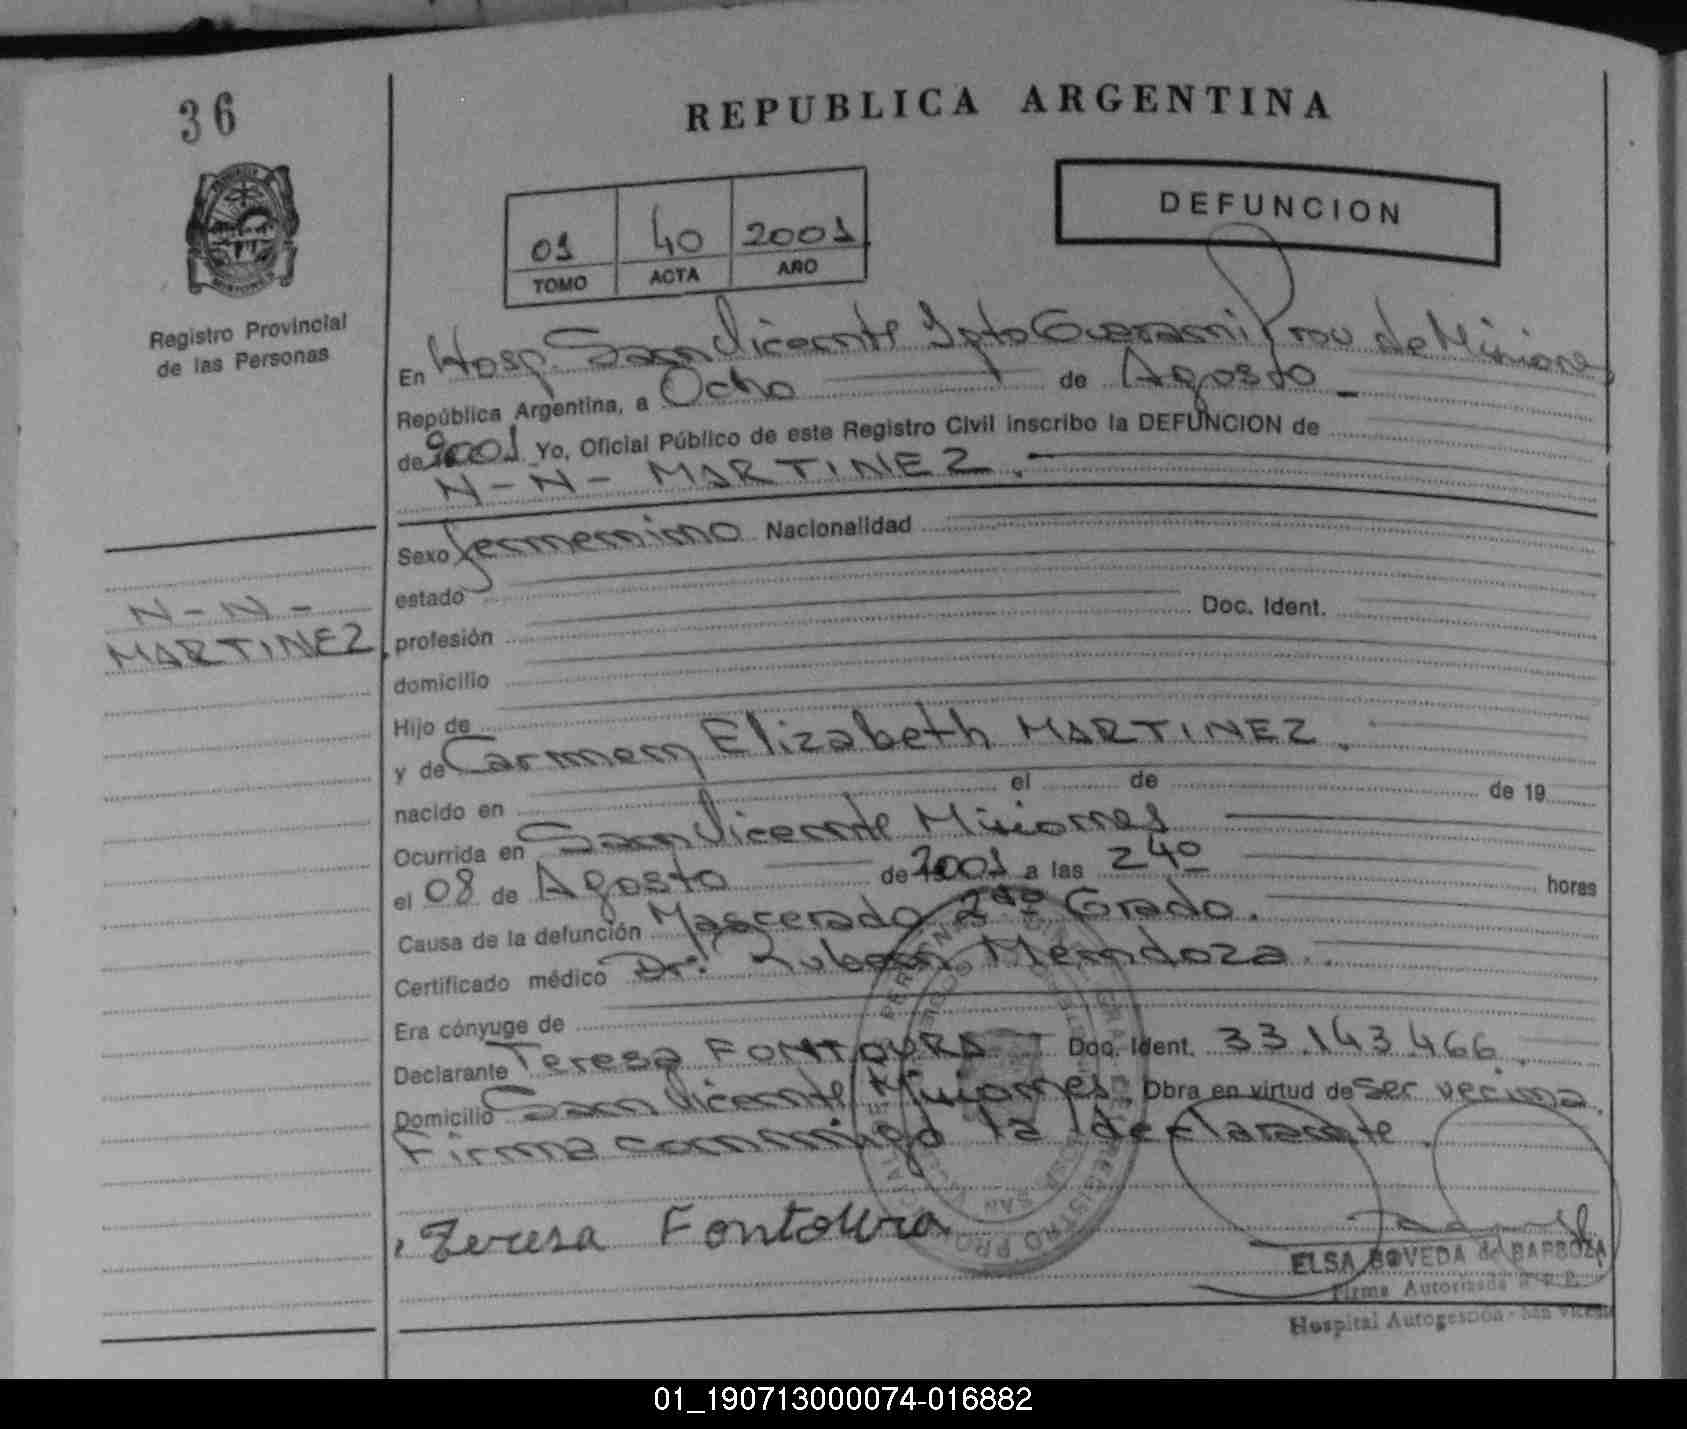 36
REPUBLICA ARGENTINA
DEFUNCION
01 40 2001
TOMO ACTA AÑO
Registro Provincial
de las Personas
En Hosp. San Vicente Dpto Guarani Prov de Misiones
República Argentina, a Ocho de Agosto
de 2001 Yo, Oficial Público de este Registro Civil inscribo la DEFUNCION de
N-N- MARTINEZ.
N-N-
MARTINEZ.
Sexo femenino Nacionalidad
estado
profesión Doc. Ident.
domicilio
Hijo de
y de Carmen Elizabeth MARTINEZ.
nacido en el de de 19
Ocurrida en San Vicente Misiones
el 08 de Agosto de 2001 a las 24º horas
Causa de la defunción Mascerado 2do Grado.
Certificado médico Dr. Ruben Mendoza.
Era cónyuge de
Declarante Teresa FONTOURA Doc. Ident. 33.143.466.
Domicilio San Vicente Misiones. Obra en virtud de ser vecina.
Firma conmigo la declarante.
Teresa Fontoura
ELSA BOVEDA de BARBOZA
Firma Autorizada
Hospital Autogestión - San Vicente
01_190713000074-016882